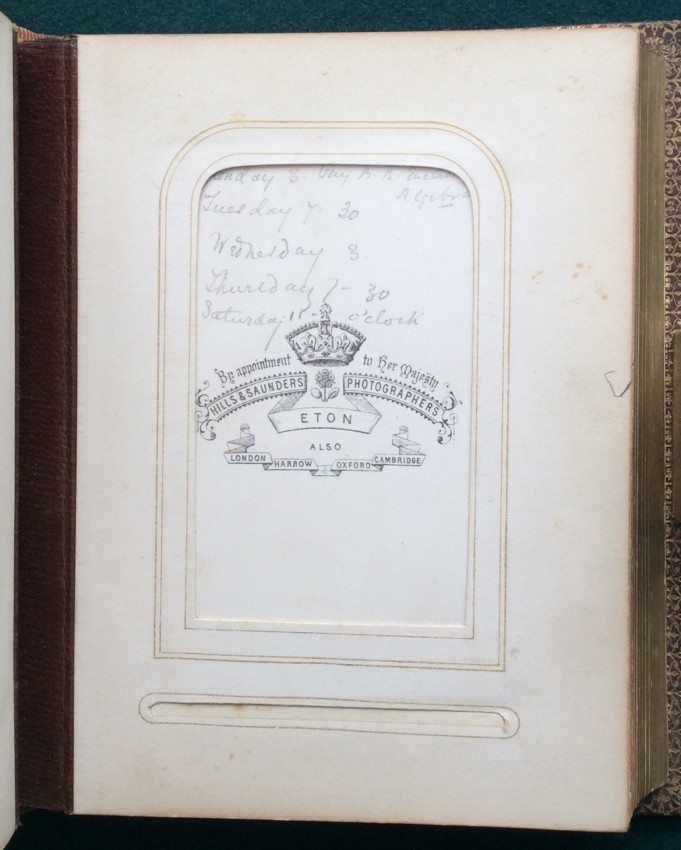 Monday 3.
Algebra
Tuesday 7. 30
Wednesday 3
Thursday 7 - 30
Saturday 11 - o'clock
By appointment to Her Majesty
HILLS & SAUNDERS PHOTOGRAPHERS
ETON
ALSO
LONDON HARROW OXFORD CAMBRIDGE